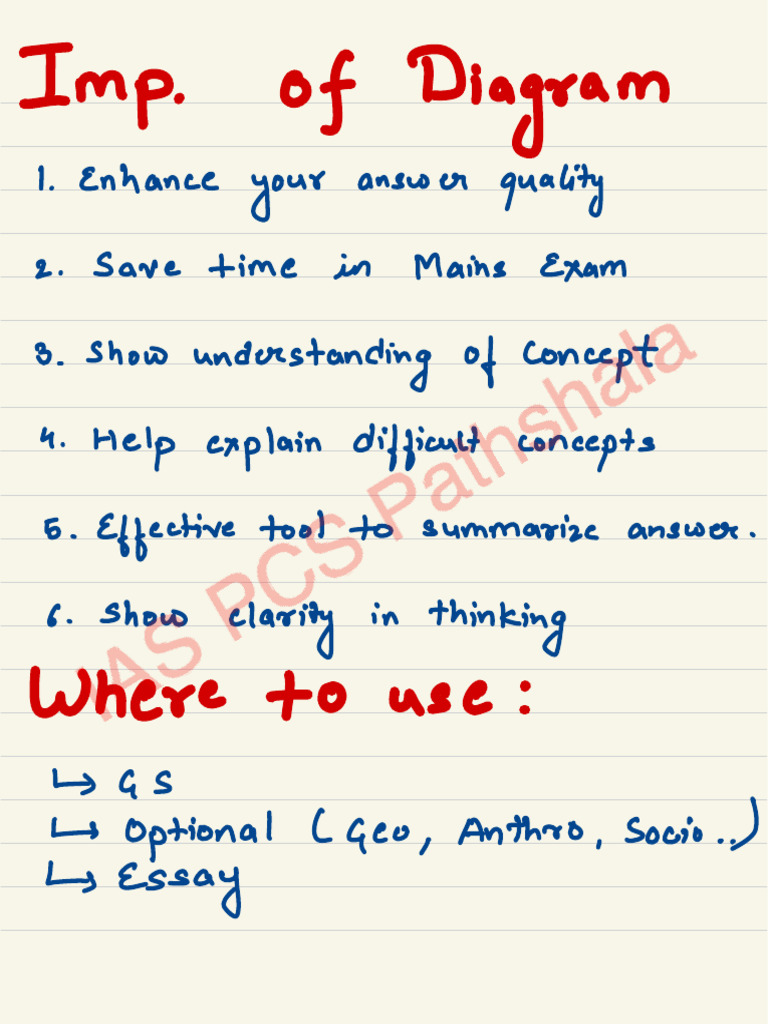 Imp. of Diagram
1. Enhance your answer quality
2. Save time in Mains Exam
3. Show understanding of Concept
4. Help explain difficult concepts
5. Effective tool to summarize answer.
6. Show clarity in thinking
Where to use:
↳ GS
↳ Optional (Geo, Anthro, Socio..)
↳ Essay
IAS PCS Pathshala